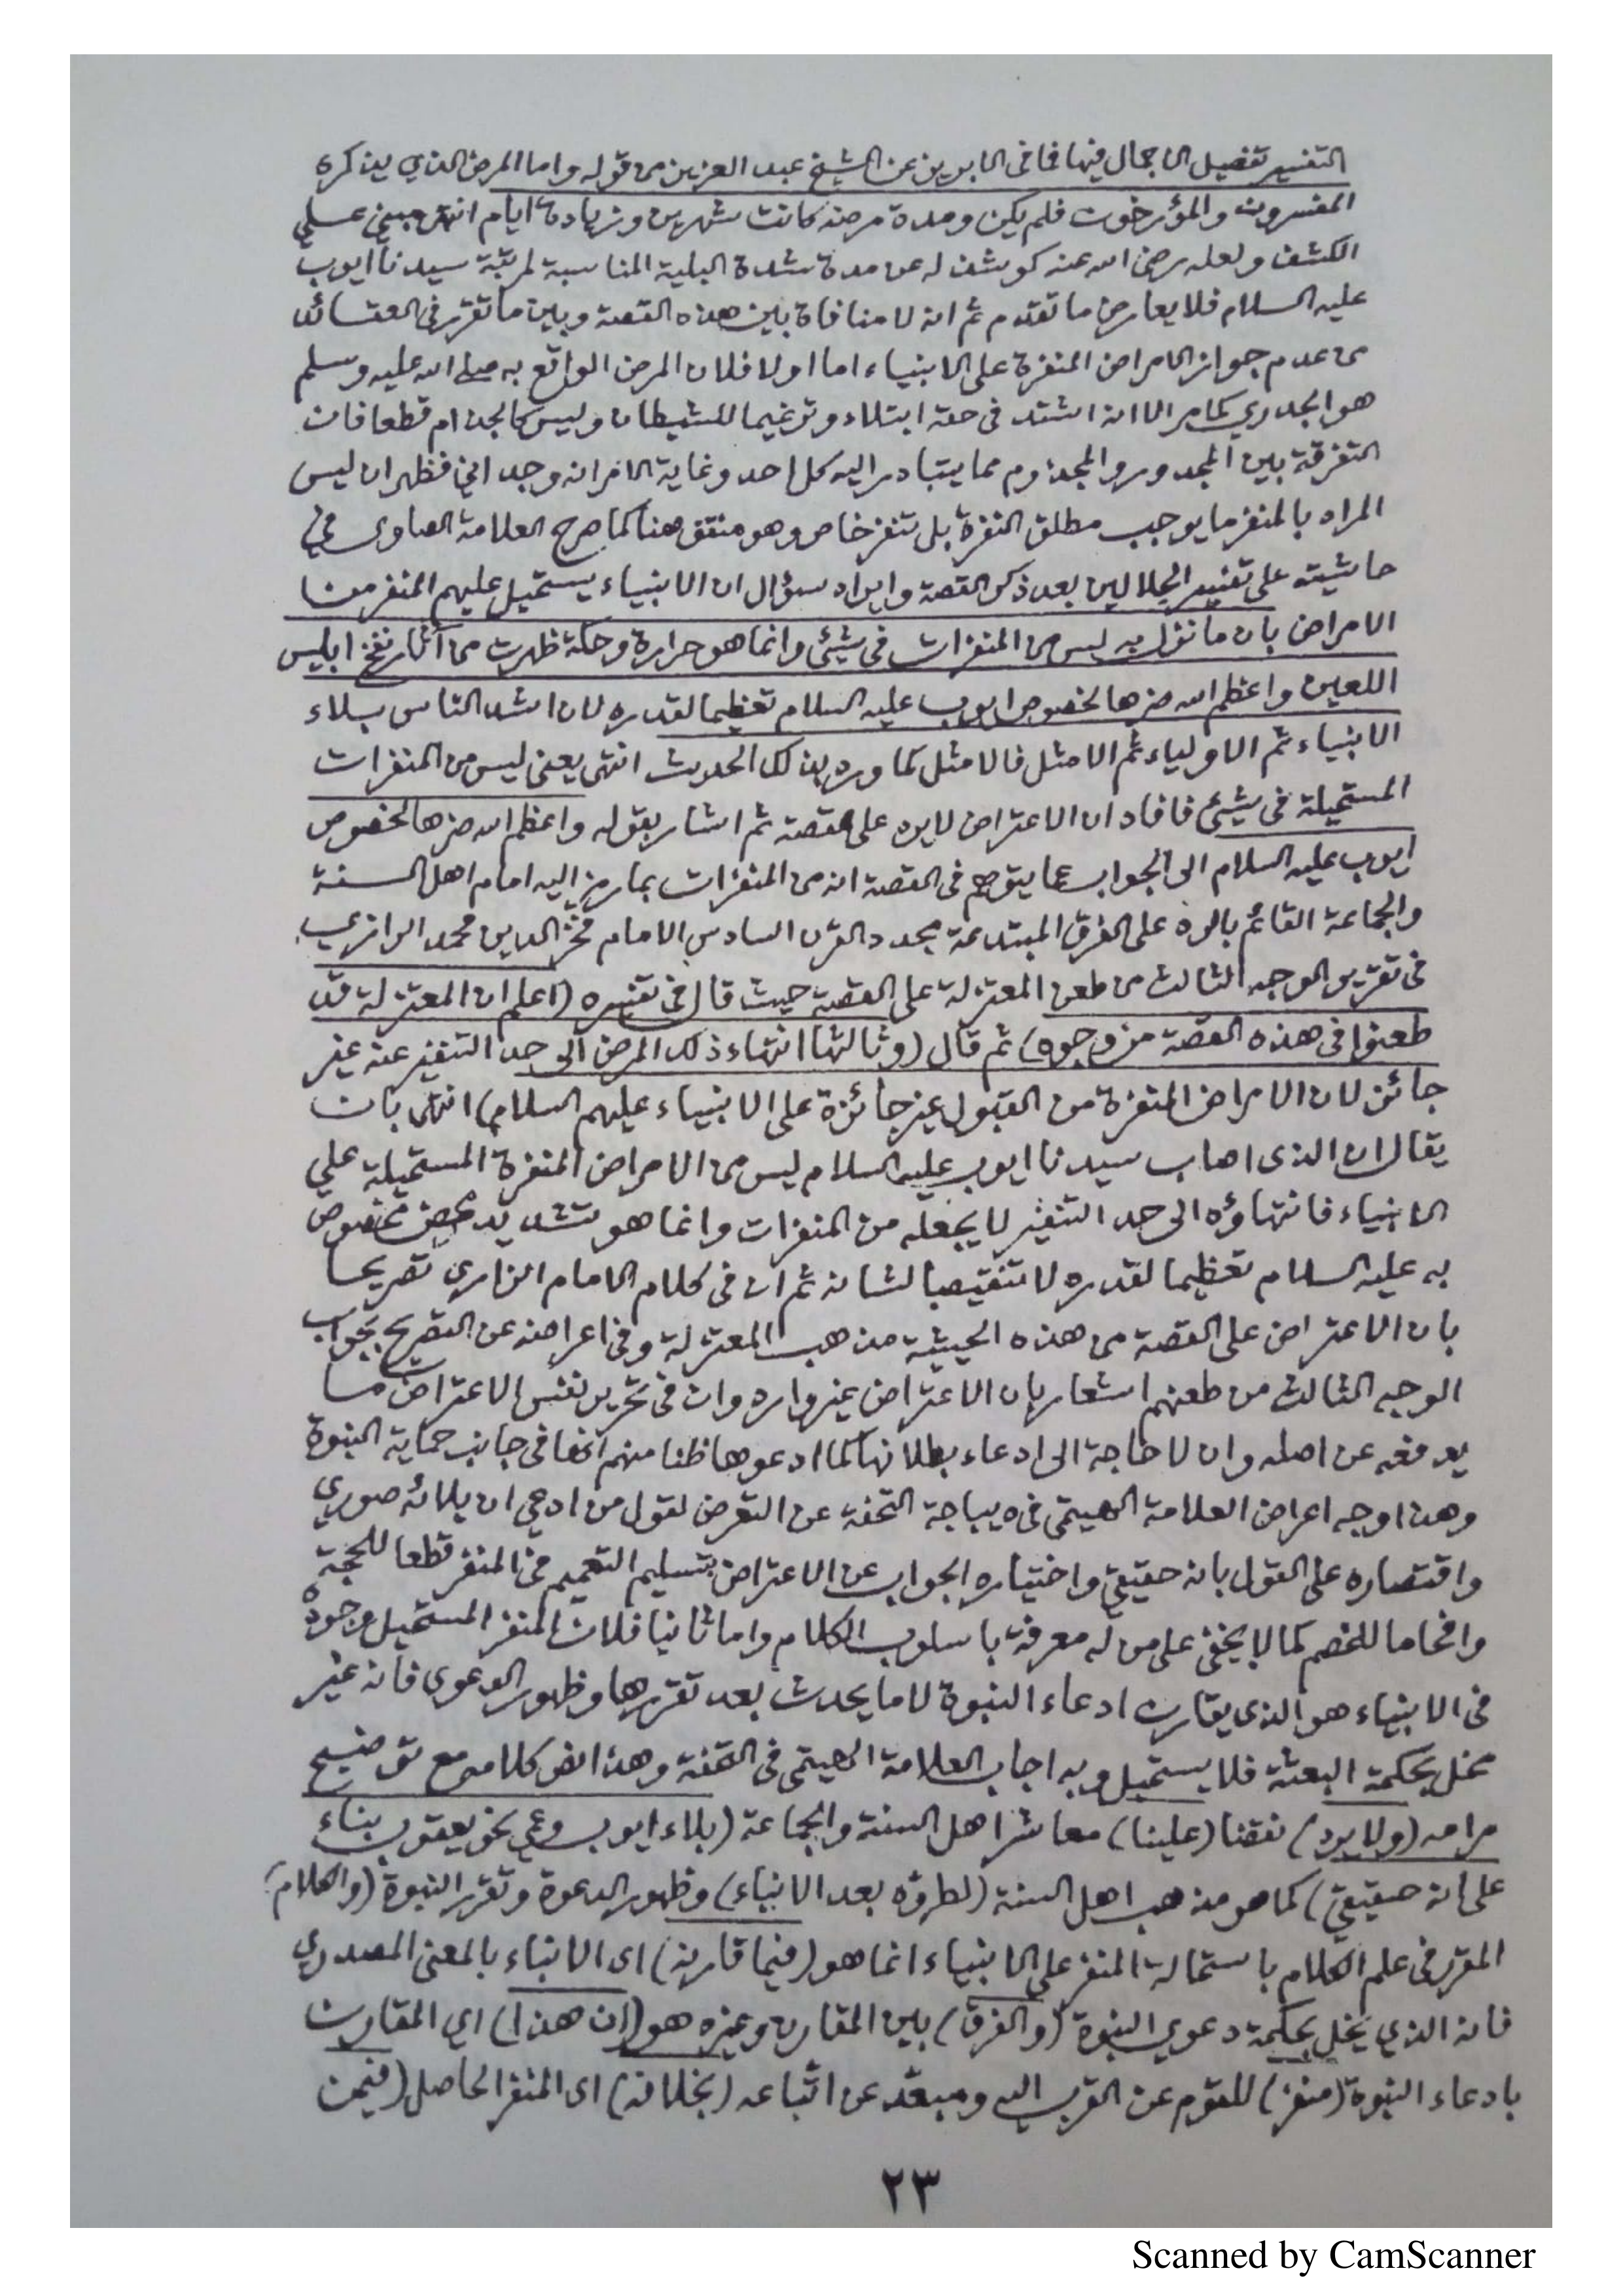 التفسير تفصيل الاجمال فيها فما فى الابريز عن الشيخ عبد العزيز من قوله واما المرض الذي يذكره
المفسرون والمؤرخون فلم يكن ومدة مرضه كانت شهرين وزيادة ايام انتهى مبنى على
الكشف ولعله رضى الله عنه كوشف له عن مدة شدة البلية المناسبة لمرتبة سيدنا ايوب
عليه السلام فلا يعارض ما تقدم ثم انه لا منافاة بين هذه القصة وبين ما تقرر فى العقائد
من عدم جواز الامراض المنفرة على الانبياء اما اولا فلان المرض الواقع به صلى الله عليه وسلم
هو الجدري كما مر الا انه اشتد فى حقه ابتلاء وترغيما للشيطان وليس كالجذام قطعا فان
التفرقة بين المجدور والمجذوم مما يتبادر اليه كل احد وغاية الامر انه وجدانى فظهر ان ليس
المراد بالمنفر ما يوجب مطلق النفرة بل تنفر خاص وهو منتف هنا كما صرح العلامة الصاوى فى
حاشيته على تفسير الجلالين بعد ذكر القصة وايراد سؤال ان الانبياء يستحيل عليهم المنفر من
الامراض بان ما نزل به ليس من المنفرات فى شيئ وانما هو حرارة وحكة ظهرت من آثار نفخ ابليس
اللعين واعظم الله ضرها لخصوص ايوب عليه السلام تعظيما لقدره لان اشد الناس بلاء
الانبياء ثم الاولياء ثم الامثل فالامثل كما ورد بذلك الحديث انتهى يعنى ليس من المنفرات
المستحيلة فى شيئ فافاد ان الاعتراض لا يرد على القصة ثم اشار بقوله واعظم الله ضرها لخصوص
ايوب عليه السلام الى الجواب عما يتوهم فى القصة انه من المنفرات بما رمز اليه امام اهل السنة
والجماعة القائم بالرد على الفرق المبتدعة مجدد القرن السادس الامام فخر الدين محمد الرازي
فى تقرير الوجه الثالث من طعن المعتزلة على القصة حيث قال فى تفسيره (اعلم ان المعتزلة قد
طعنوا فى هذه القصة من وجوه) ثم قال (وثالثها انتهاء ذلك المرض الى حد التنفير عنه غير
جائز لان الامراض المنفرة من القبول غير جائزة على الانبياء عليهم السلام) انتهى بان
يقال ان الذى اصاب سيدنا ايوب عليه السلام ليس من الامراض المنفرة المستحيلة على
الانبياء فانتهاؤه الى حد التنفير لا يجعله من المنفرات وانما هو تشديد محض مخصوص
به عليه السلام تعظيما لقدره لا تنقيصا لشانه ثم ان فى كلام الامام الرازي تصريحا
بان الاعتراض على القصة من هذه الحيثية مذهب المعتزلة وفى اعراضه عن التصريح بجواب
الوجه الثالث من طعنهم اشعار بان الاعتراض غير وارد وان فى تحرير نفس الاعتراض ما
يدفعه عن اصله وان لا حاجة الى ادعاء بطلانها كما ادعوها ظنا منهم انها فى جانب حماية النبوة
وهذا وجه اعراض العلامة الهيتمى فى ديباجة التحفة عن التعرض لقول من ادعى ان بلائه صوري
واقتصاره على القول بانه حقيقي واختياره الجواب عن الاعتراض بتسليم التعميم فى المنفر قطعا للحجة
وافحاما للخصم كما لا يخفى على من له معرفة باسلوب الكلام واما ثانيا فلان المنفر المستحيل وجوده
فى الانبياء هو الذى يقارن ادعاء النبوة لا ما يحدث بعد تقررها وظهور الدعوى فانه غير
مخل بحكمة البعثة فلا يستحيل وبه اجاب العلامة الهيتمى فى التحفة وهذا نص كلامه مع توضيح
مرامه (ولا يرد) نقضا (علينا) معاشر اهل السنة والجماعة (بلاء ايوب وعمى نحو يعقوب بناء
على انه حقيقي) كما هو مذهب اهل السنة (لطروه بعد الانباء) وظهور الدعوة وتقرر النبوة (والكلام)
المقرر فى علم الكلام باستحالة المنفر على الانبياء انما هو (فيما قارنه) اى الانباء بالمعنى المصدري
فانه الذي يخل بحكمة دعوى النبوة (والفرق) بين المقارن وغيره هو (ان هذا) اي المقارن
بادعاء النبوة (منفر) للقوم عن القرب اليه ومبعّد عن اتّباعه (بخلافه) اى المنفر الحاصل (فيمن
٢٣
Scanned by CamScanner